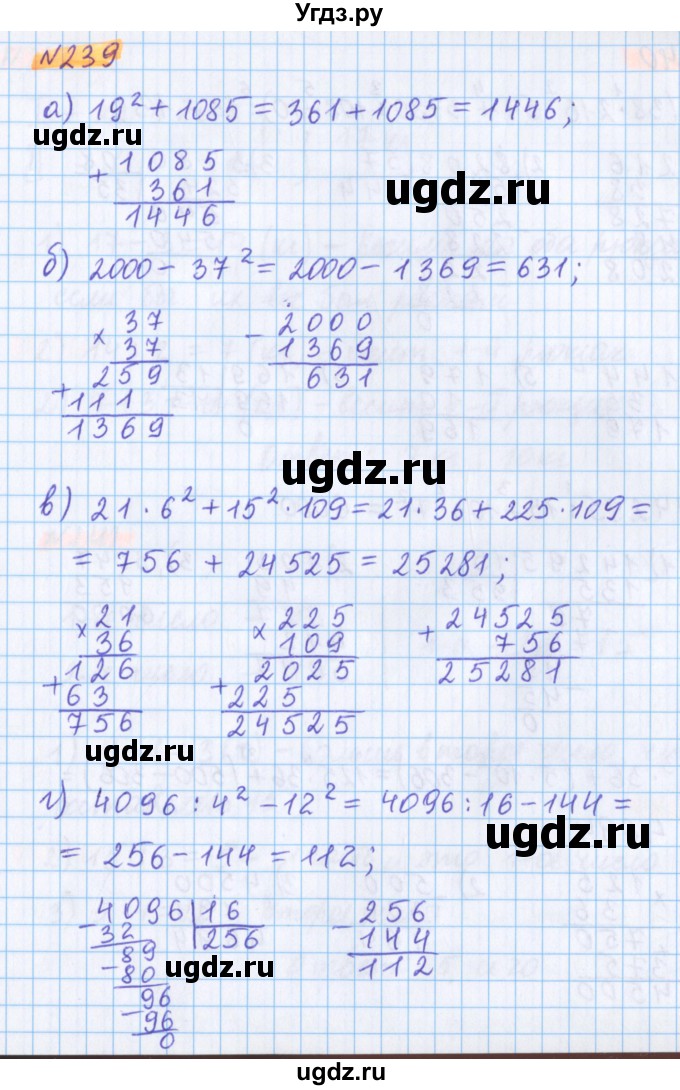 Угдз.ру
№239
а) 19² + 1085 = 361 + 1085 = 1446;
ugdz.ru
+ 1085
361
1446
ugdz.ru
б) 2000 - 37² = 2000 - 1369 = 631;
× 37
37
+ 259
111
1369
- 2000
1369
631
ugdz.ru
в) 21 · 6² + 15² · 109 = 21 · 36 + 225 · 109 =
= 756 + 24525 = 25281;
× 21
36
+ 126
63
756
× 225
109
+ 2025
225
24525
+ 24525
756
25281
ugdz.ru
г) 4096 : 4² - 12² = 4096 : 16 - 144 =
ugdz.ru
= 256 - 144 = 112;
- 4096 | 16
32 256
89
- 80
96
- 96
0
- 256
144
112
ugdz.ru
ugdz.ru